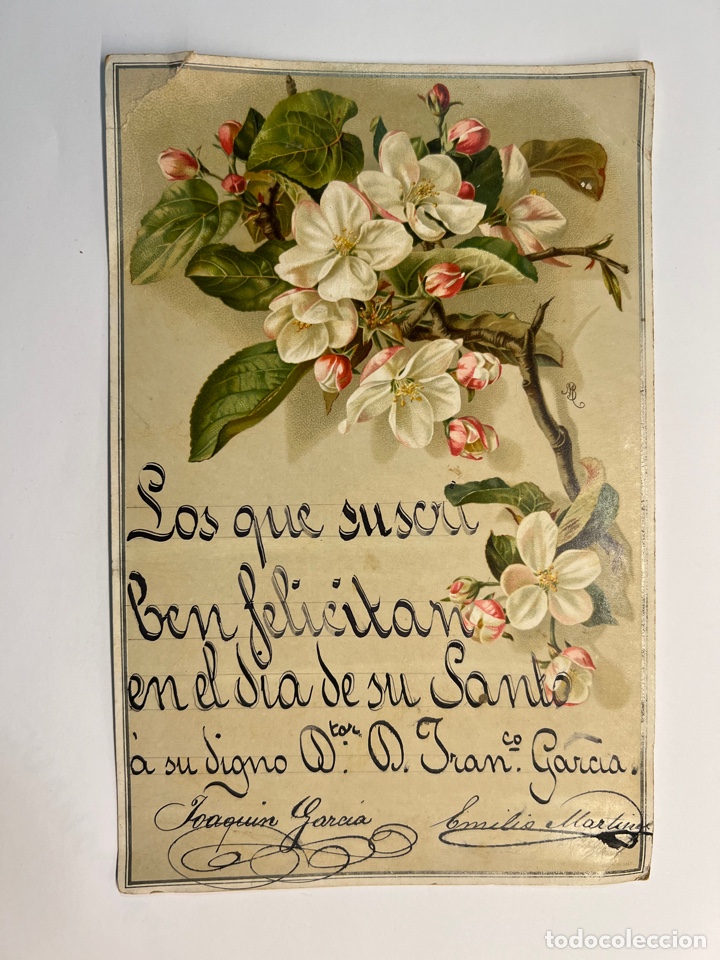 Los que suscri
ben felicitan
en el dia de su Santo
á su digno D.tor D. Fran.co García.
Joaquin García Emilio Martinez
todocoleccion
todocoleccion.net